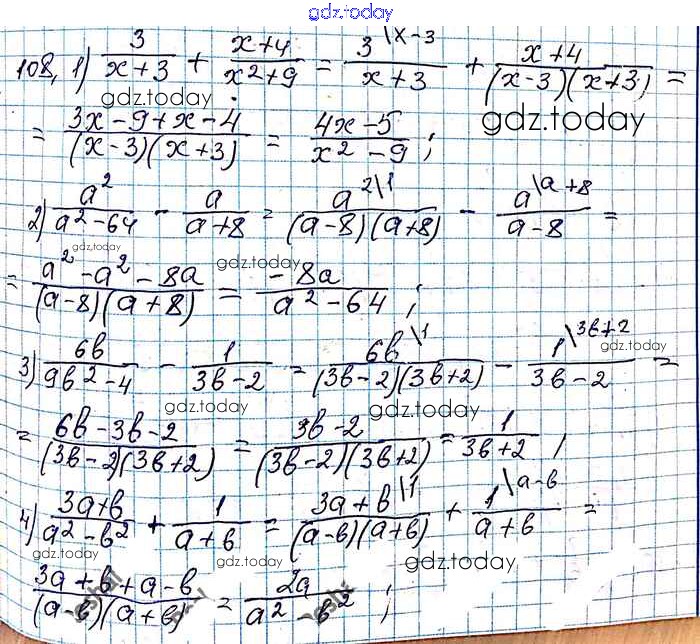 gdz.today
108, 1) 3/(x+3) + (x+4)/(x²+9) = 3\x-3/(x+3) + (x+4)/((x-3)(x+3)) =
gdz.today
gdz.today
= (3x-9+x-4)/((x-3)(x+3)) = (4x-5)/(x²-9);
2) a²/(a²-64) - a/(a+8) = a²\1/((a-8)(a+8)) - a\a+8/(a-8) =
gdz.today
gdz.today
gdz.today
= (a²-a²-8a)/((a-8)(a+8)) = (-8a)/(a²-64);
3) 6b/(9b²-4) - 1/(3b-2) = 6b\1/((3b-2)(3b+2)) - 1\3b+2/(3b-2) =
gdz.today
gdz.today
gdz.today
= (6b-3b-2)/((3b-2)(3b+2)) = (3b-2)/((3b-2)(3b+2)) = 1/(3b+2);
4) (3a+b)/(a²-b²) + 1/(a+b) = (3a+b)\1/((a-b)(a+b)) + 1\a-b/(a+b) =
gdz.today
gdz.today
gdz.today
(3a+b+a-b)/((a-b)(a+b)) = 2a/(a²-b²);